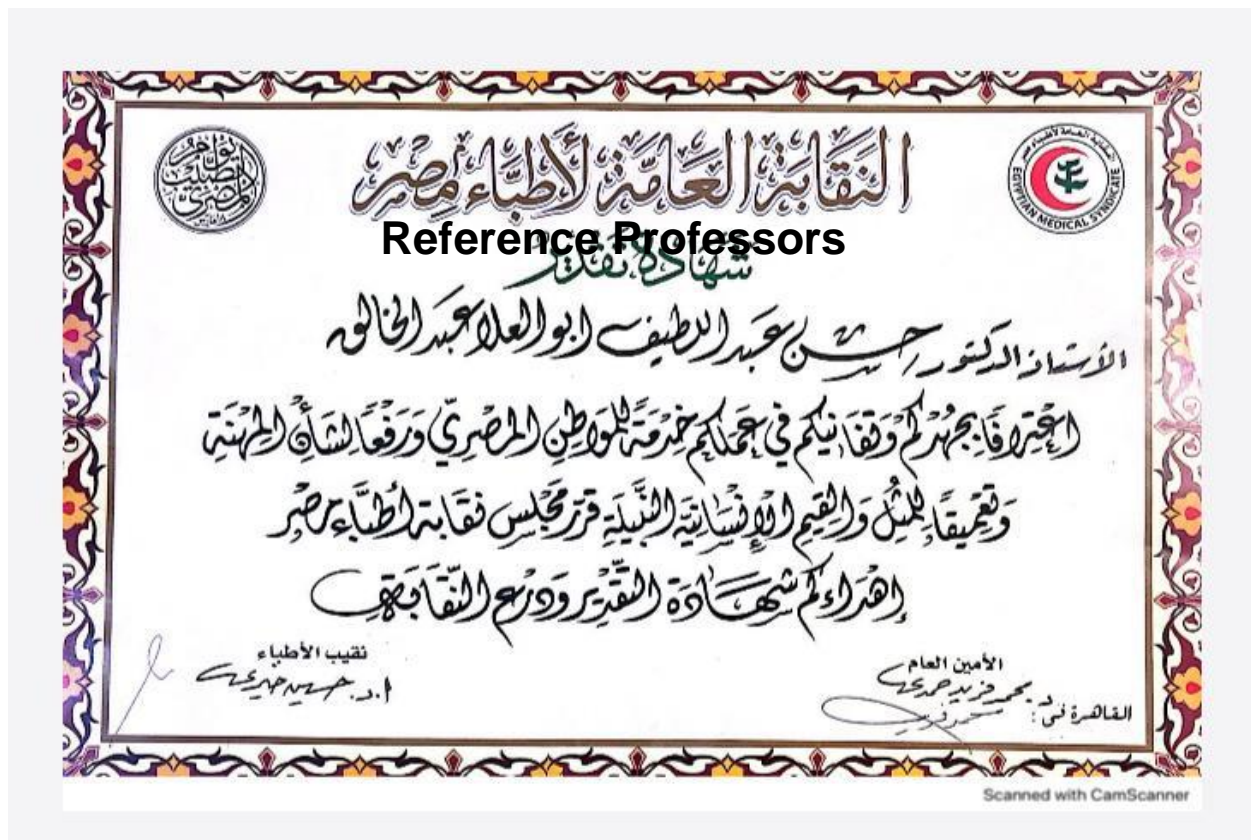 النقابة العامة لأطباء مصر
النقابة العامة لأطباء مصر
EGYPTIAN MEDICAL SYNDICATE
يوم الطبيب المصري
Reference Professors
شهادة تقدير
الأستاذ الدكتور حسن عبد اللطيف ابو العلا عبد الخالق
اعترافًا بجهدكم وتفانيكم في عملكم خدمةً للمواطن المصريّ ورفعًا لشأن المهنة
وتعميقًا للمثل والقيم الإنسانية النبيلة قرر مجلس نقابة أطباء مصر
إهداءكم شهادة التقدير ودرع النقابة
نقيب الأطباء
أ.د. حسين خيرى
الأمين العام
د. محمد فريد حمدى
القاهرة فى :
Scanned with CamScanner